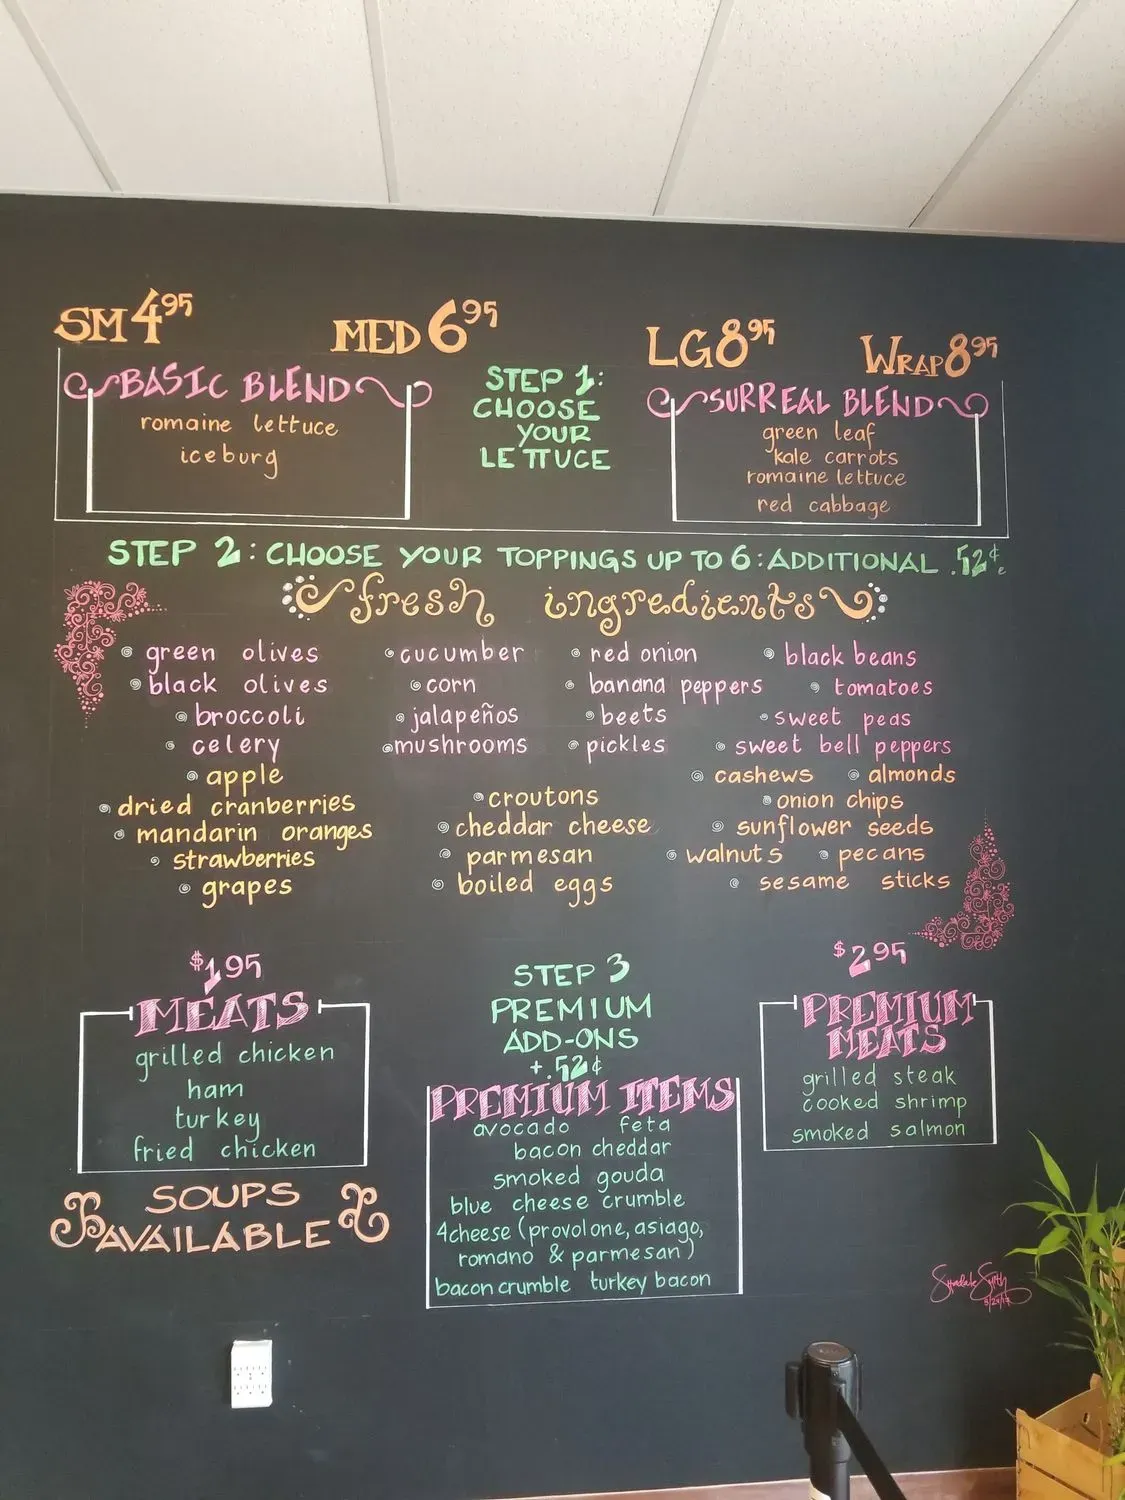 SM 4.95 MED 6.95 LG 8.95 WRAP 8.95
BASIC BLEND
romaine lettuce
iceburg
STEP 1:
CHOOSE
YOUR
LETTUCE
SURREAL BLEND
green leaf
kale carrots
romaine lettuce
red cabbage
STEP 2: CHOOSE YOUR TOPPINGS UP TO 6: ADDITIONAL .52¢
fresh ingredients
green olives
black olives
broccoli
celery
apple
dried cranberries
mandarin oranges
strawberries
grapes
cucumber
corn
jalapeños
mushrooms
red onion
banana peppers
beets
pickles
croutons
cheddar cheese
parmesan
boiled eggs
black beans
tomatoes
sweet peas
sweet bell peppers
cashews almonds
onion chips
sunflower seeds
walnuts pecans
sesame sticks
$1.95
MEATS
grilled chicken
ham
turkey
fried chicken
SOUPS
AVAILABLE
STEP 3
PREMIUM
ADD-ONS
+.52¢
PREMIUM ITEMS
avocado feta
bacon cheddar
smoked gouda
blue cheese crumble
4cheese (provolone, asiago,
romano & parmesan)
bacon crumble turkey bacon
$2.95
PREMIUM
MEATS
grilled steak
cooked shrimp
smoked salmon